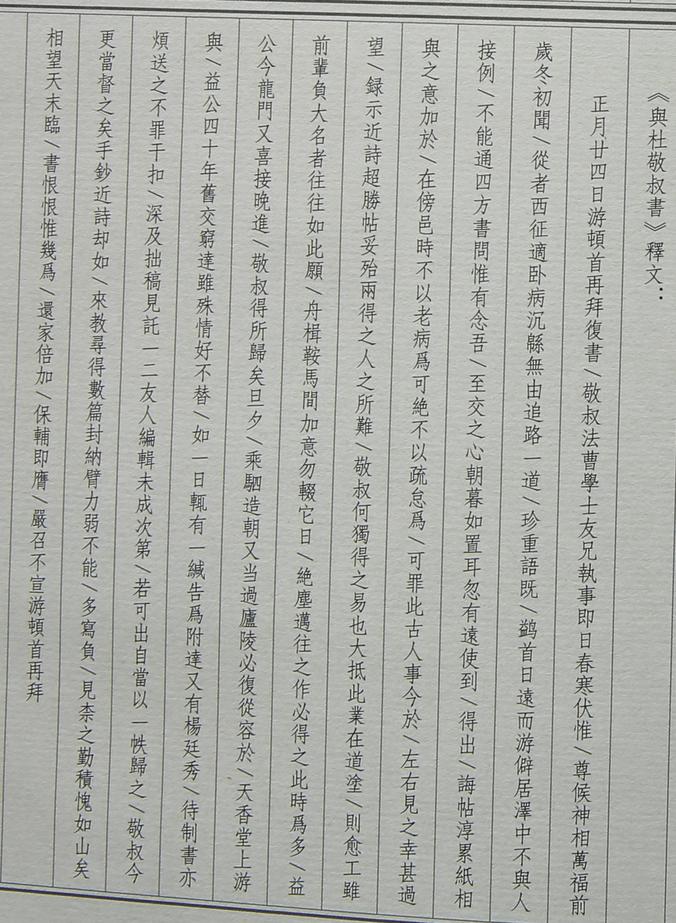 《與杜敬叔書》釋文：
正月廿四日游頓首再拜復書/敬叔法曹學士友兄執事即日春寒伏惟/尊候神相萬福前
歲冬初聞/從者西征適卧病沉緜無由追路一道/珍重語既/鷁首日遠而游僻居澤中不與人
接例/不能通四方書問惟有念吾/至交之心朝暮如置耳忽有遠使到/得出/誨帖淳累紙相
與之意加於/在傍邑時不以老病爲可絶不以疏怠爲/可罪此古人事今於/左右見之幸甚過
望/録示近詩超勝帖妥殆兩得之人之所難/敬叔何獨得之易也大抵此業在道塗/則愈工雖
前輩負大名者往往如此願/舟楫鞍馬間加意勿輟它日/絶塵邁往之作必得之此時爲多/益
公今龍門又喜接晚進/敬叔得所歸矣旦夕/乘駟造朝又当過廬陵必復從容於/天香堂上游
與/益公四十年舊交窮達雖殊情好不替/如一日輒有一緘告爲附達又有楊廷秀/待制書亦
煩送之不罪干扣/深及拙稿見託一二友人編輯未成次第/若可出自當以一帙歸之/敬叔今
更當督之矣手鈔近詩却如/來教尋得數篇封納臂力弱不能/多寫負/見柰之勤積愧如山矣
相望天末臨/書恨恨惟幾爲/還家倍加/保輔即膺/嚴召不宣游頓首再拜